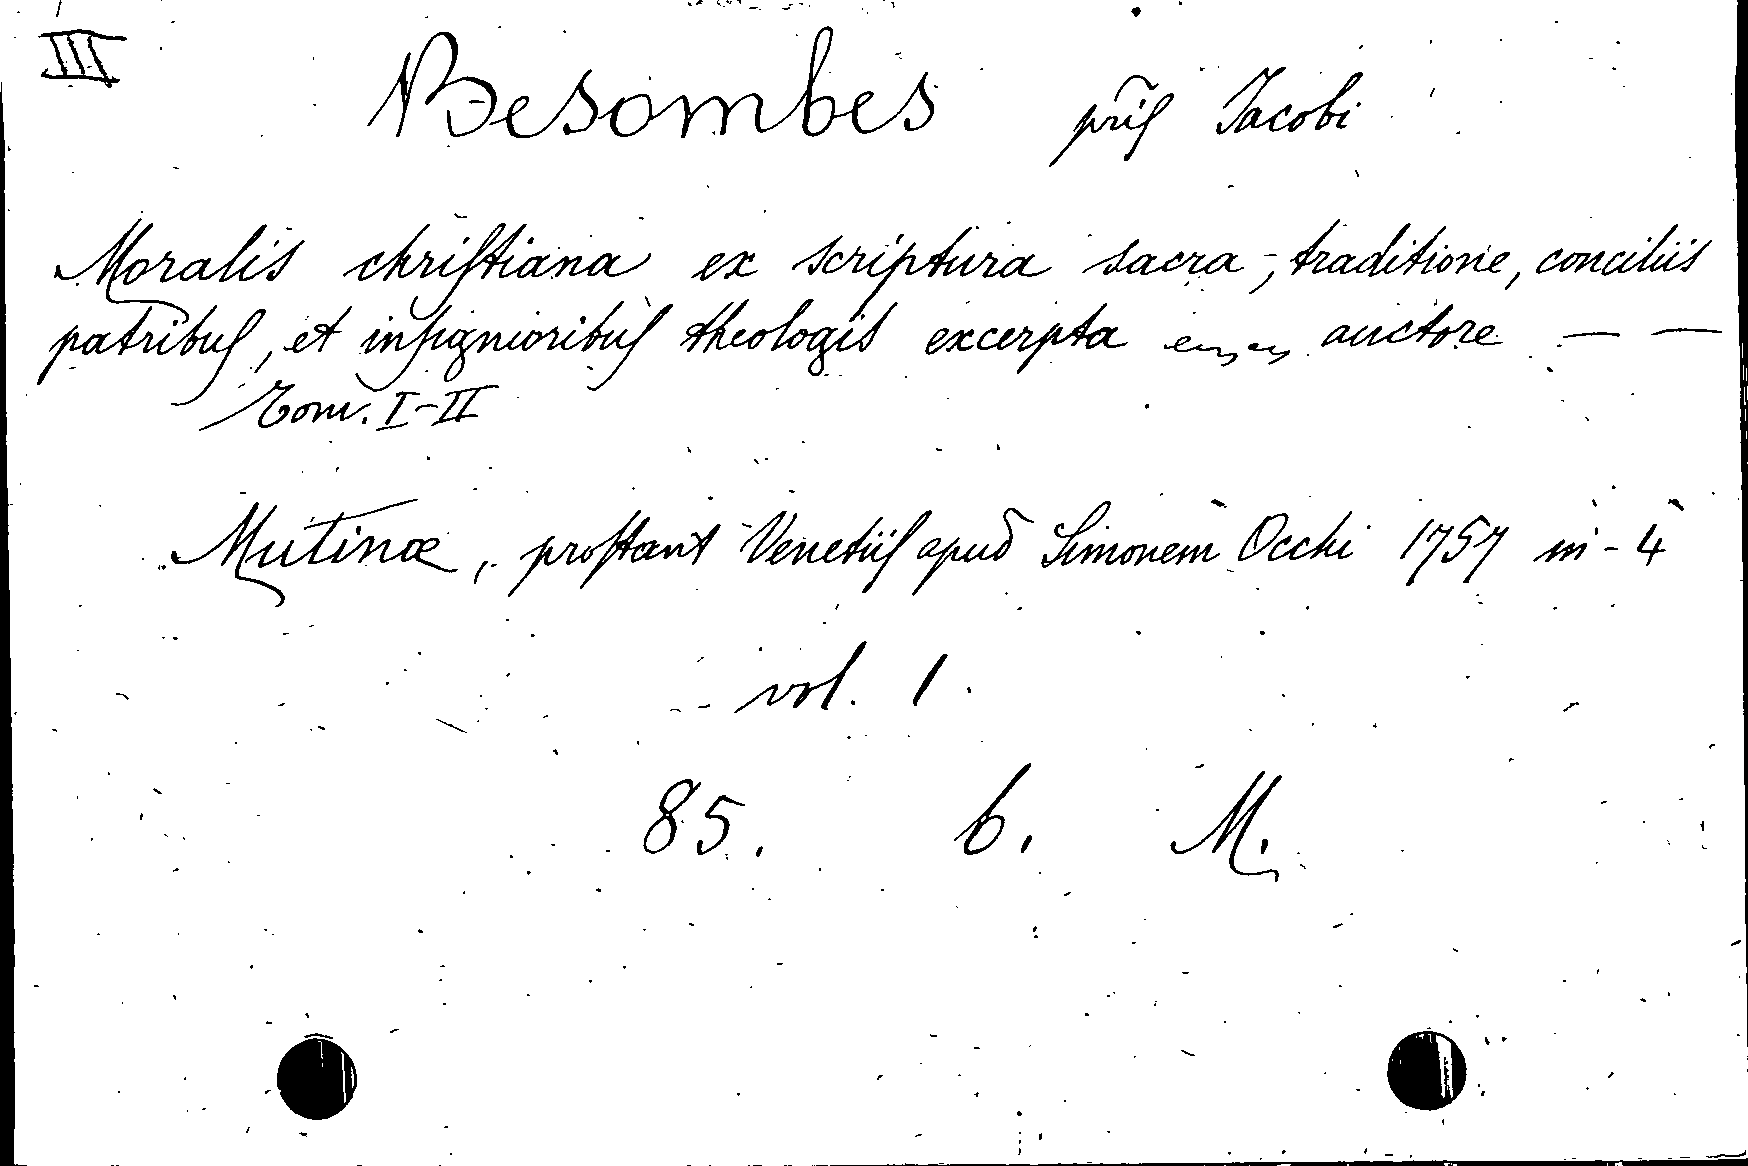 III
Besombes pris Jacobi
Moralis chriſtiana ex scriptura sacra, traditione, conciliis
patribuſ, et inſignioribuſ theologis excerpta auctore — —
Tom. I-II
Mutinæ, proſtant Venetiiſ apud Simonem Occhi 1757 in-4
vol. 1.
85. 6. M.